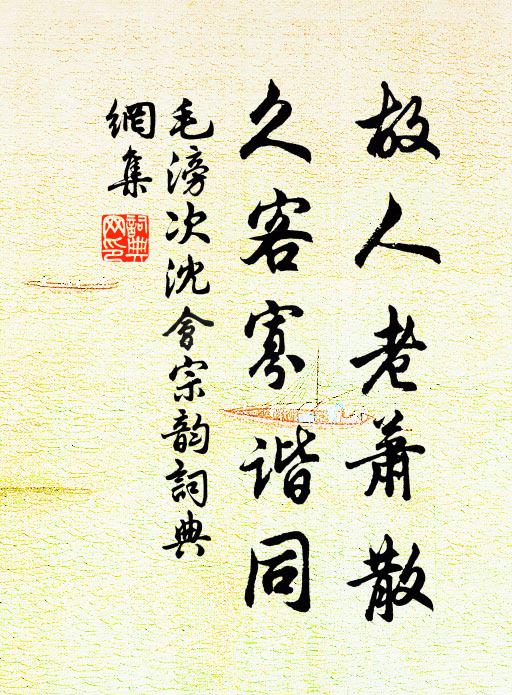 故人老蕭散
久客寡谐同
毛滂次沈會宗韵詞典
網集
詞典
网印